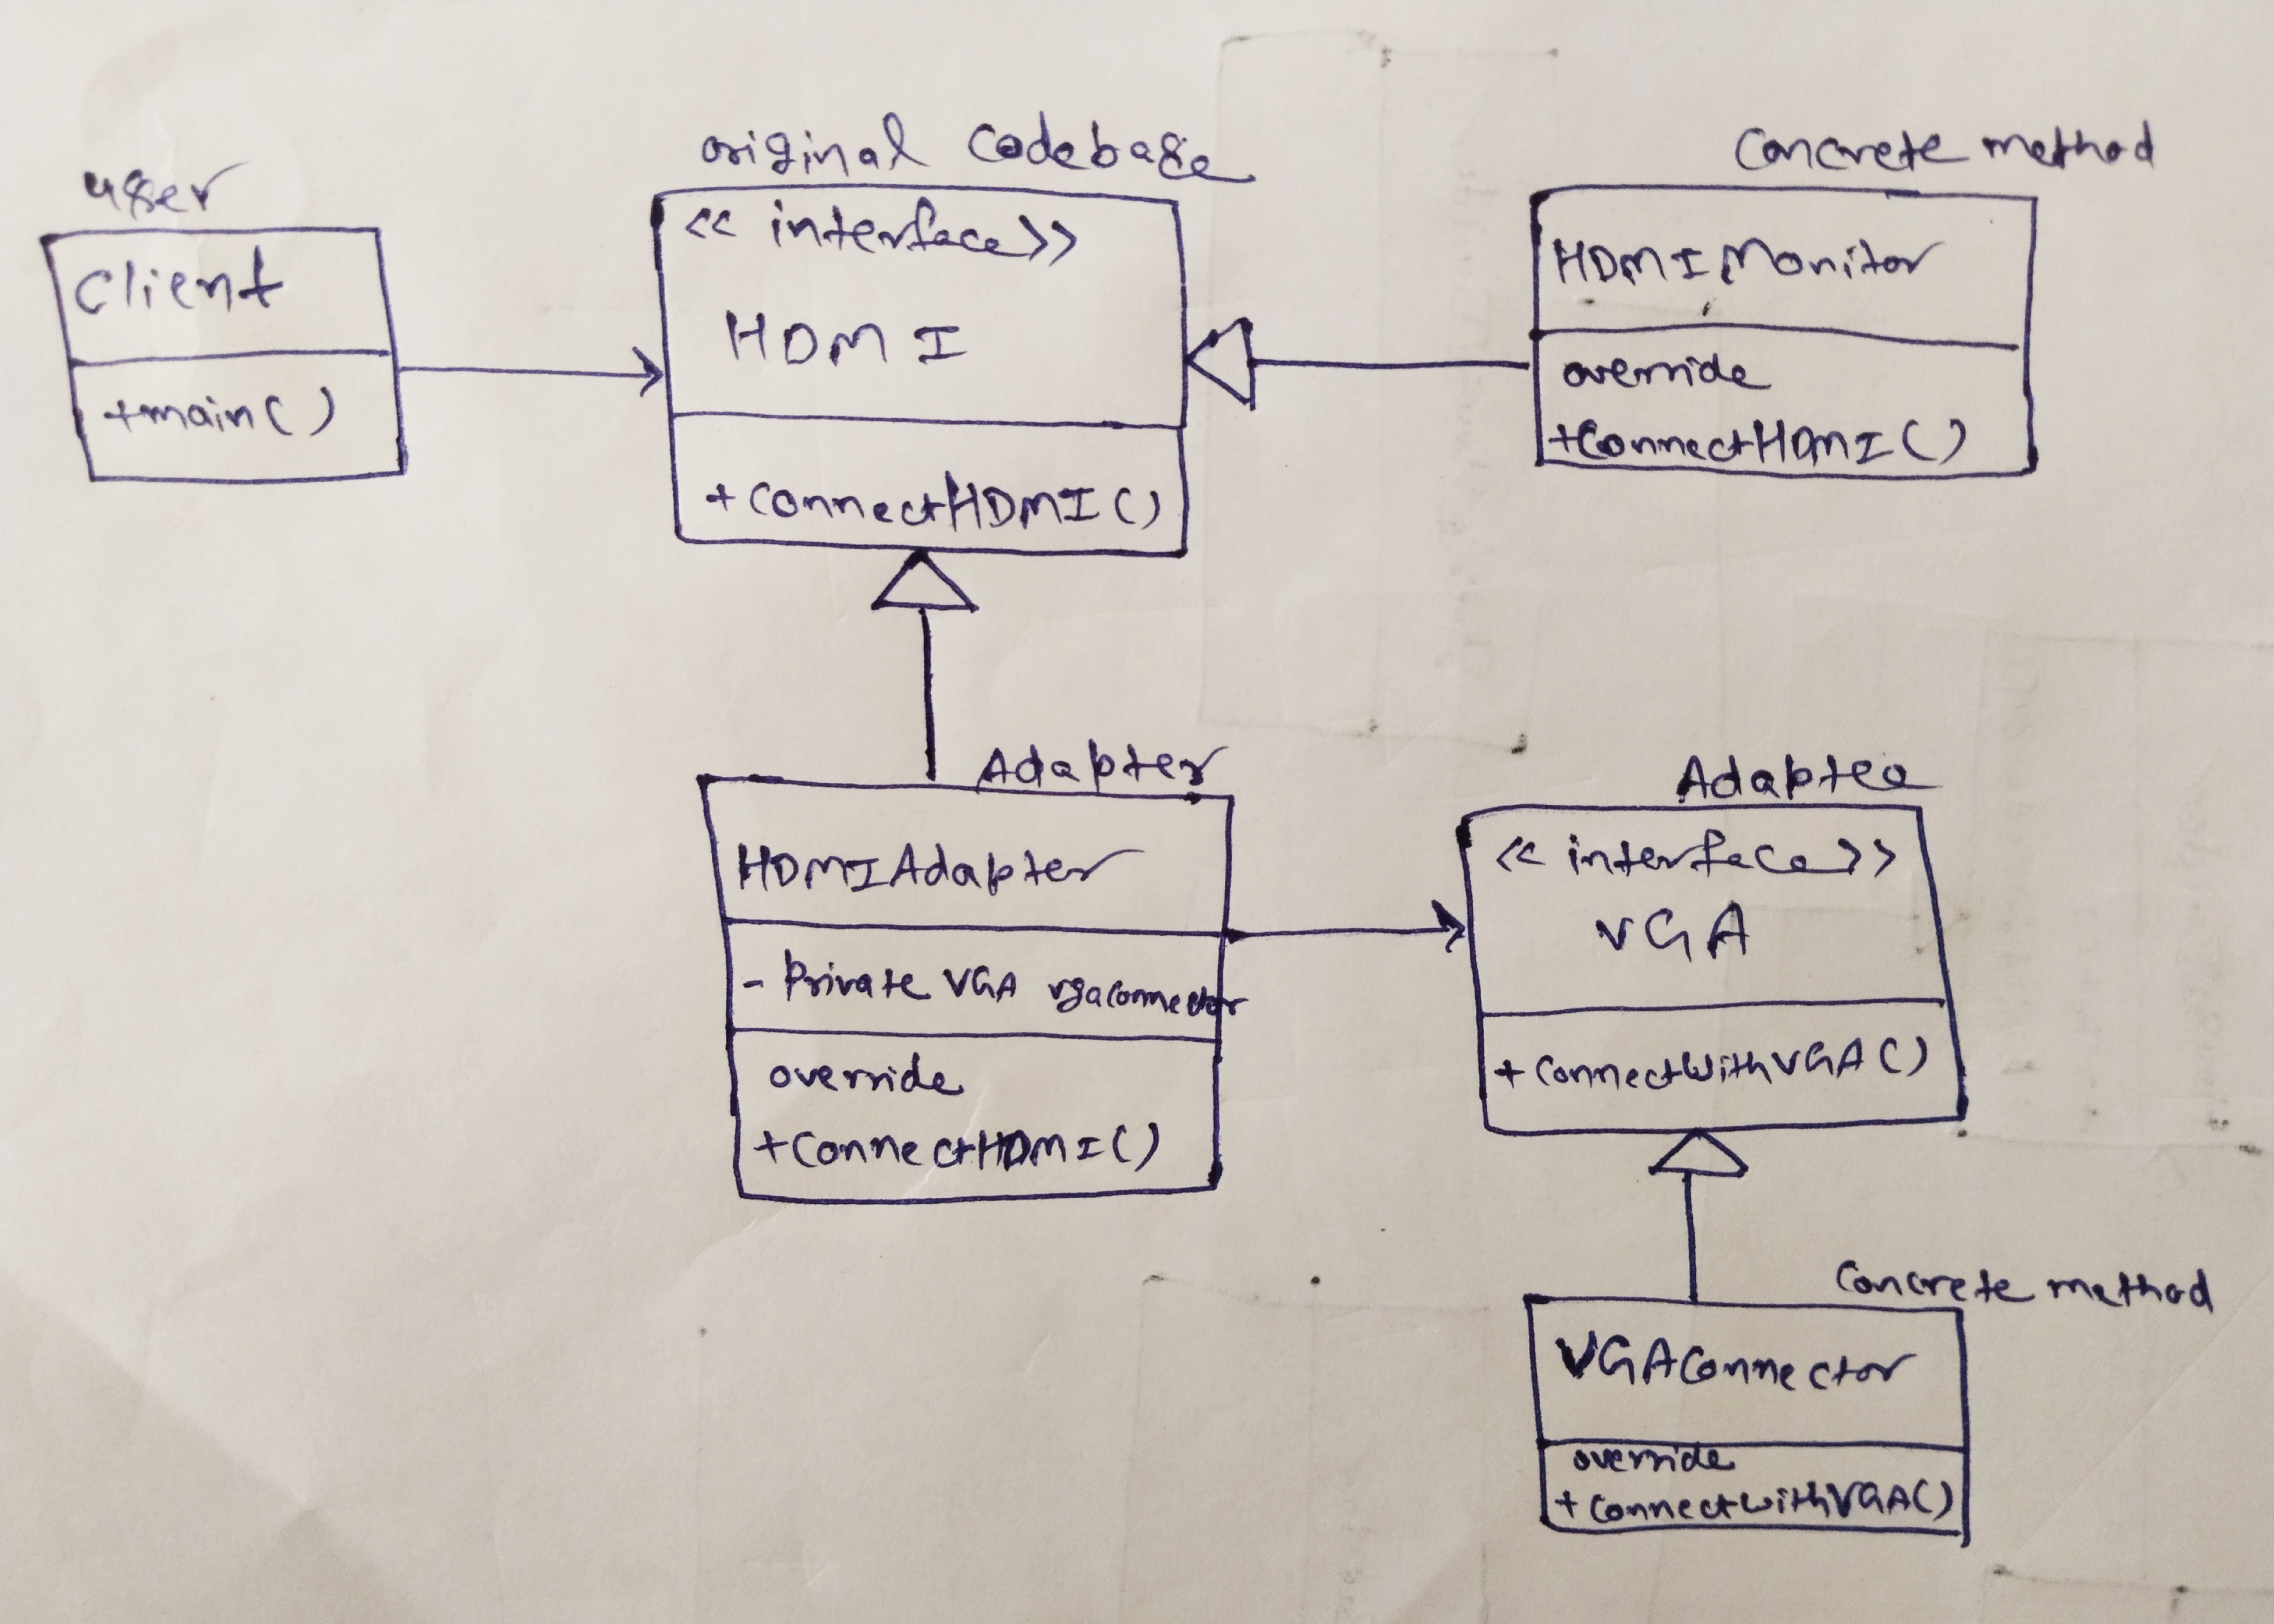 user
Client
+main()
original Codebase
<< interface>>
HDMI
+ ConnectHDMI()
Concrete method
HDMIMonitor
override
+ConnectHDMI()
Adapter
HDMIAdapter
- Private VGA vgaconnector
override
+ConnectHDMI()
Adaptee
<< interface>>
VGA
+ConnectWithVGA()
Concrete method
VGAConnector
override
+ConnectwithVGA()